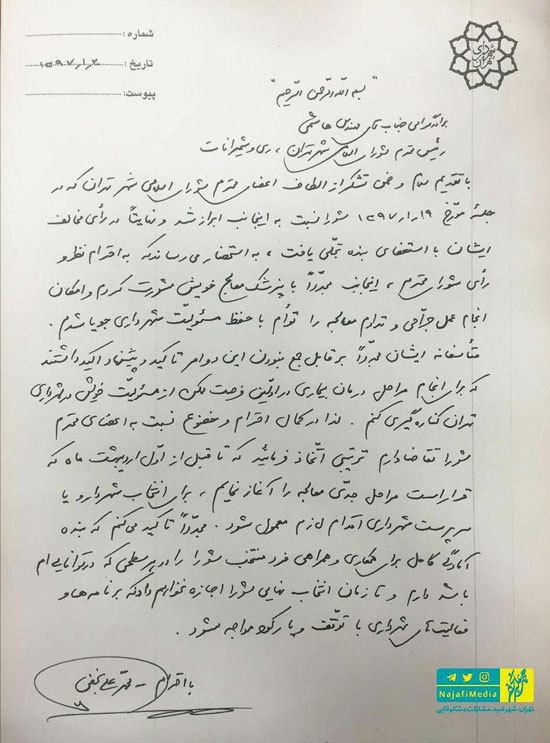 شماره :
تاریخ : ۱۳۹۷/۱/۲۰
پیوست :
"بسم الله الرحمن الرحیم"
برادر گرامی جناب آقای مهندس هاشمی
رئیس محترم شورای اسلامی شهر تهران، ری و شمیرانات
با تقدیم سلام و ضمن تشکر از الطاف اعضای محترم شورای اسلامی شهر تهران که در
جلسهٔ مورّخ ۱۹/۱/۱۳۹۷ شورا نسبت به اینجانب ابراز شد و نهایتاً در رأی مخالف
ایشان با استعفای بنده تجلّی یافت، به استحضار می رساند که به احترام نظر و
رأی شورای محترم، اینجانب مجدّداً با پزشک معالج خویش مشورت کردم و امکان
انجام عمل جرّاحی و تداوم معالجه را توأم با حفظ مسئولیّت شهرداری جویا شدم.
متأسفانه ایشان مجدّداً بر قابل جمع نبودن این دو امر تاکید و پیشنهاد اکید داشتند
که برای انجام مراحل درمان بیماری در اوّلین فرصت ممکن از مسئولیّت خویش در شهرداری
تهران کناره گیری کنم. لذا در کمال احترام و خضوع نسبت به اعضای محترم
شورا تقاضا دارم ترتیبی اتّخاذ فرمائید که تا قبل از اوّل اردیبهشت ماه که
قرار است مراحل جدّی معالجه را آغاز نمایم، برای انتخاب شهردار و یا
سرپرست شهرداری اقدام لازم معمول شود. مجدّداً تأکید می کنم که بنده
آمادگی کامل برای همکاری و همراهی فرد منتخب شورا را در هر سطحی که در توانایی ام
باشد دارم و تا زمان انتخاب نهایی شورا اجازه نخواهم داد که برنامه ها و
فعالیت های شهرداری با توقّف و یا رکود مواجه شود.
با احترام - محمّد علی نجفی
NajafiMedia
تهران؛ شهر امید، مشارکت و شکوفایی